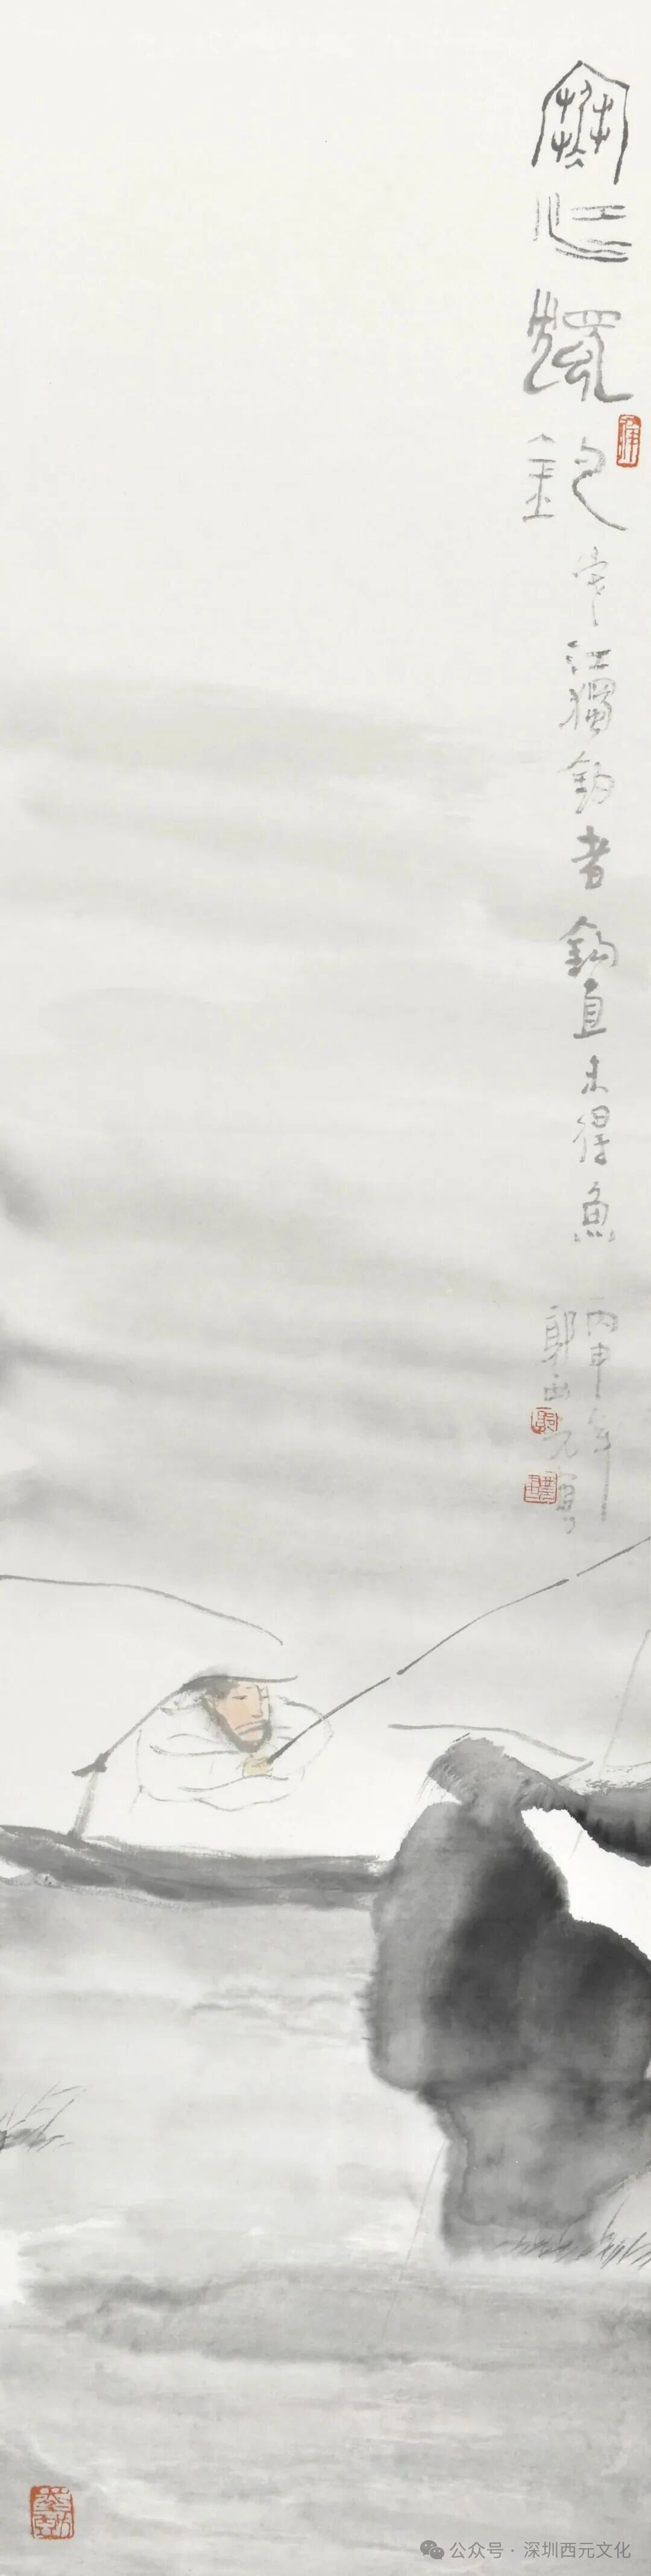 寒江獨釣
寒江獨釣者鉤直未得魚
丙申年
郭西元寫
公众号 · 深圳西元文化